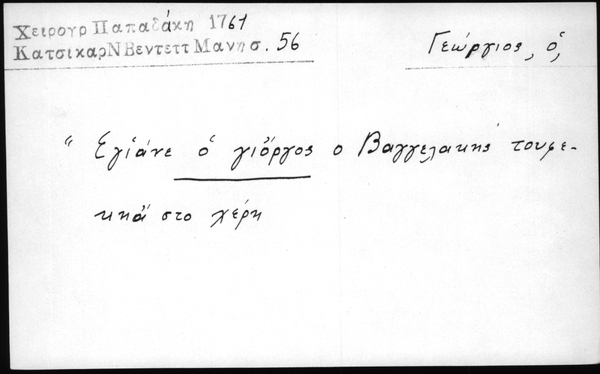 Χειρογρ Παπαδάκη 1761
ΚατσικαρΝ Βενтετт Μανησ. 56
Γεώργιος, ὁ,
" Εγίάνε ὁ γιὄργος ο Βαγγελακης τουφε-
κηἄ στο χέρη